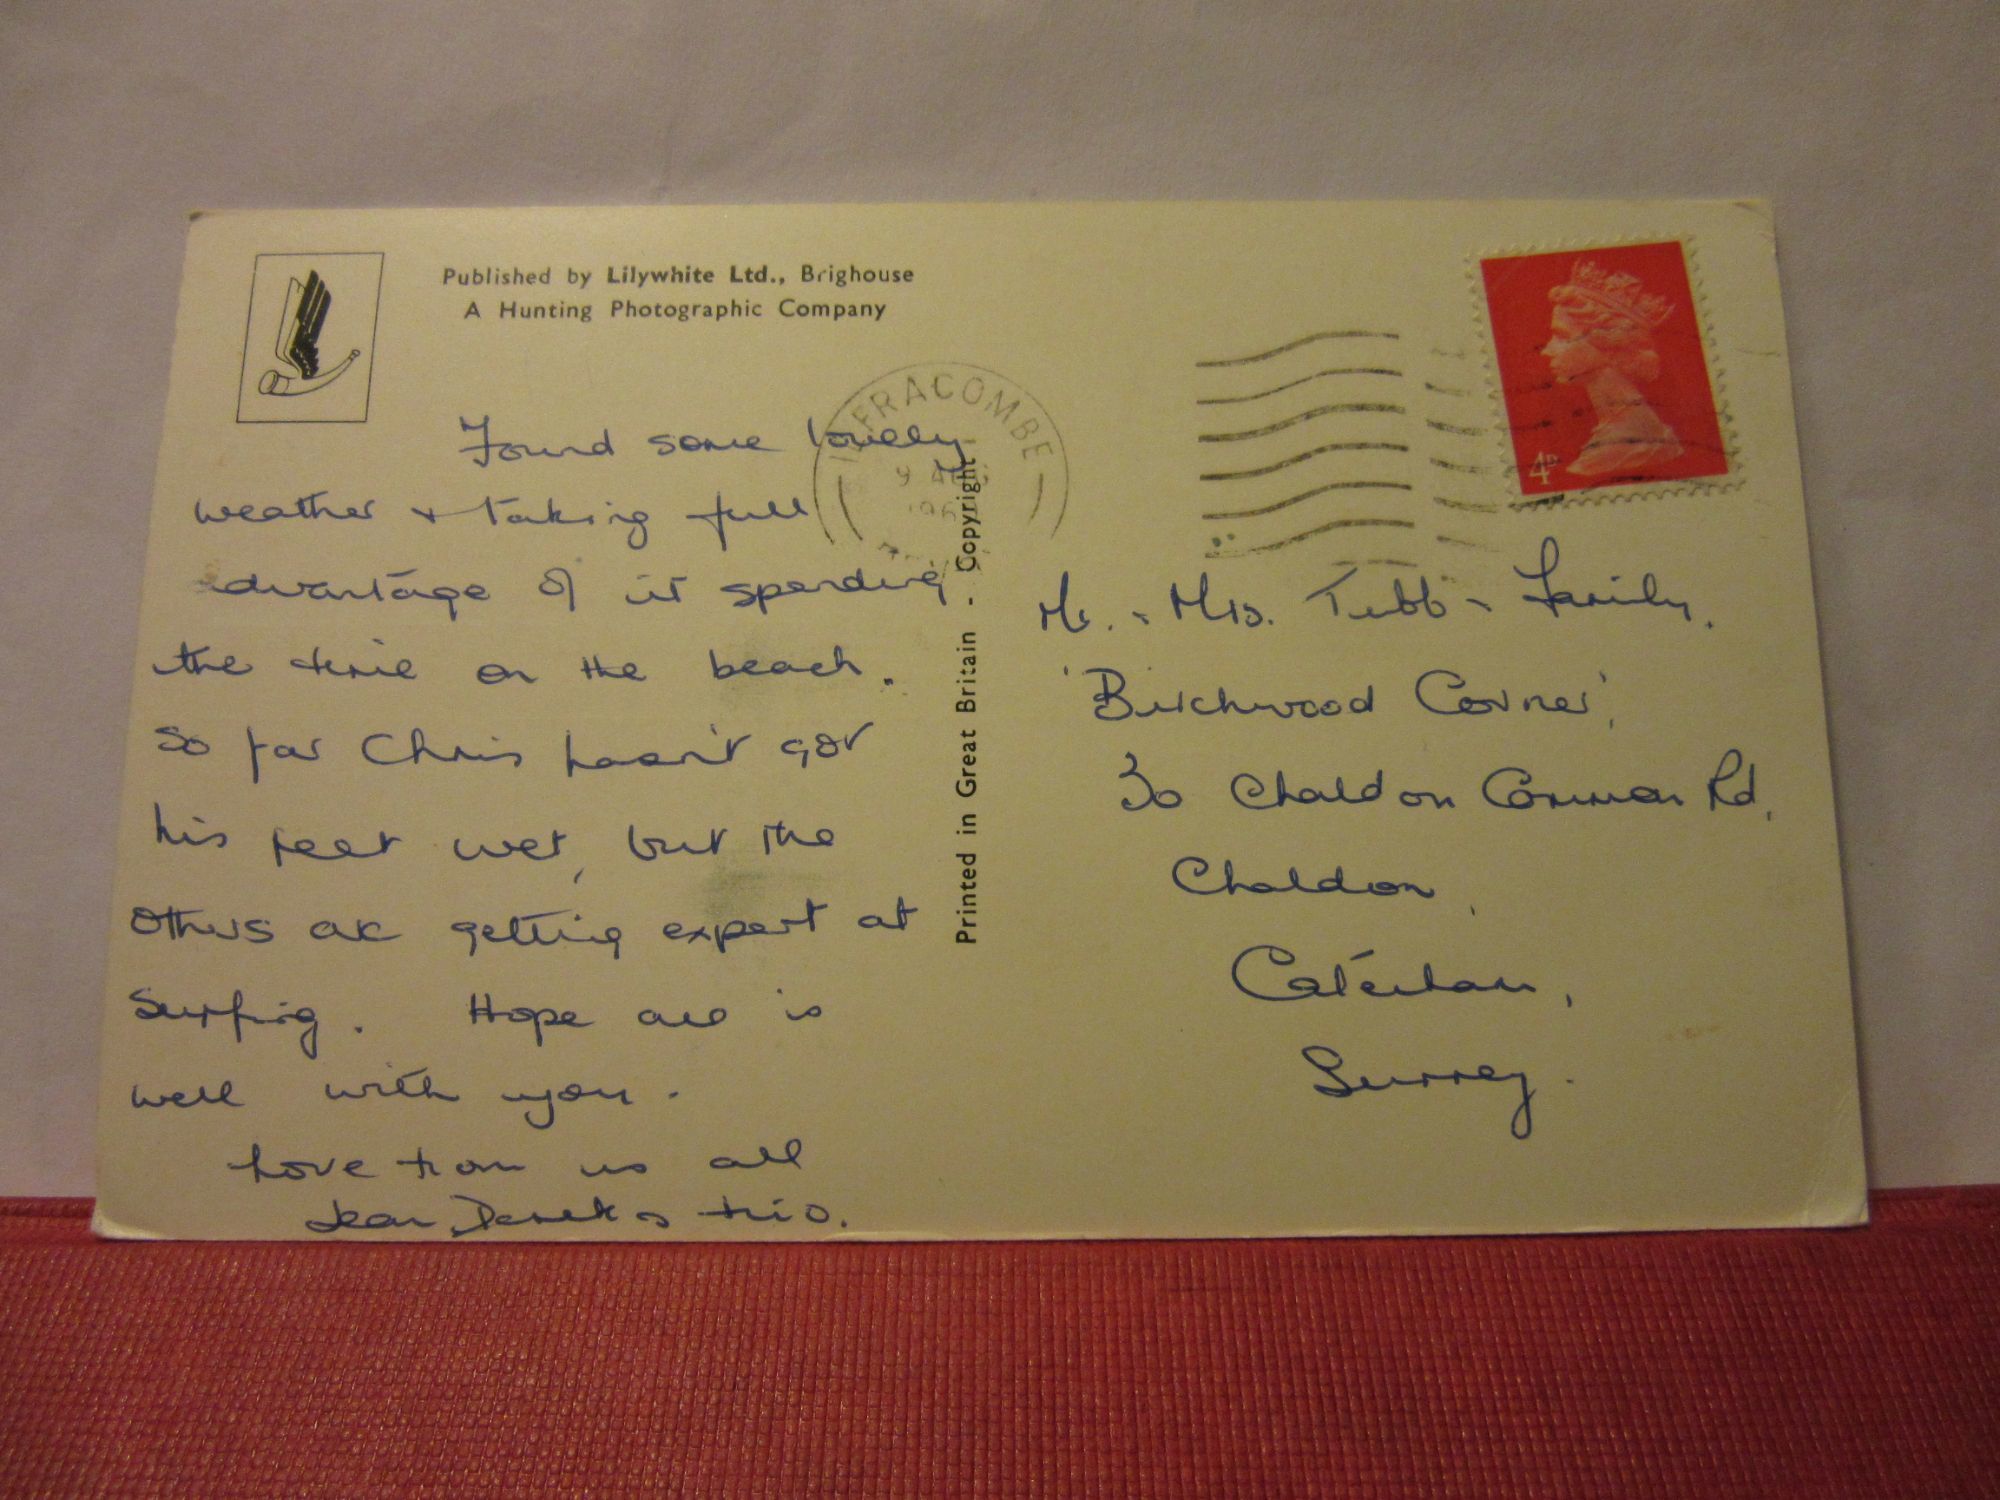 Published by Lilywhite Ltd., Brighouse
A Hunting Photographic Company
Found some lovely
weather + taking full
advantage of it spending
the time on the beach.
So far Chris hasn't got
his feet wet, but the
others are getting expert at
surfing. Hope all is
well with you.
Love from us all
Jean, Derek & trio.
Printed in Great Britain - Copyright
ILFRACOMBE
9 AUG
4D
Mr. & Mrs. Tubb & Family.
'Birchwood Corner',
30 Chaldon Common Rd,
Chaldon,
Caterham,
Surrey.